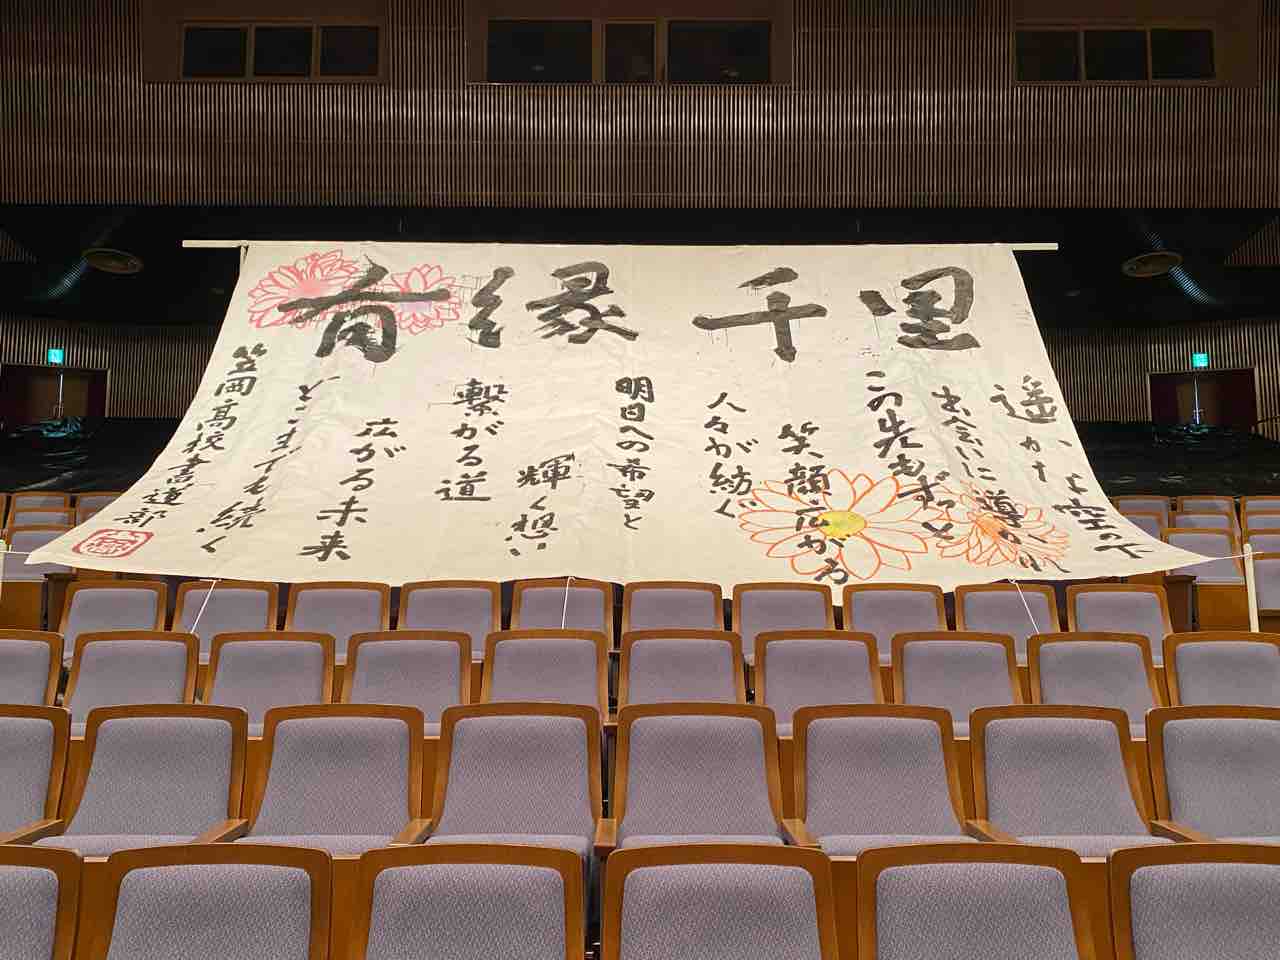 有縁千里
遥かな空の下
出会いに導かれ
この先もずっと
笑顔広がる
人々が紡ぐ
明日への希望と
輝く想い
繋がる道
広がる未来
どこまでも続く
笠岡高校書道部